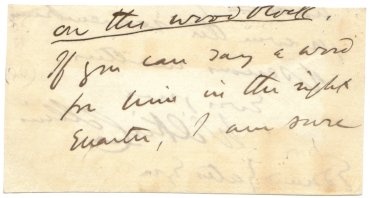 on this wood block.
If you can say a word
for him in the right
Quarter, I am sure